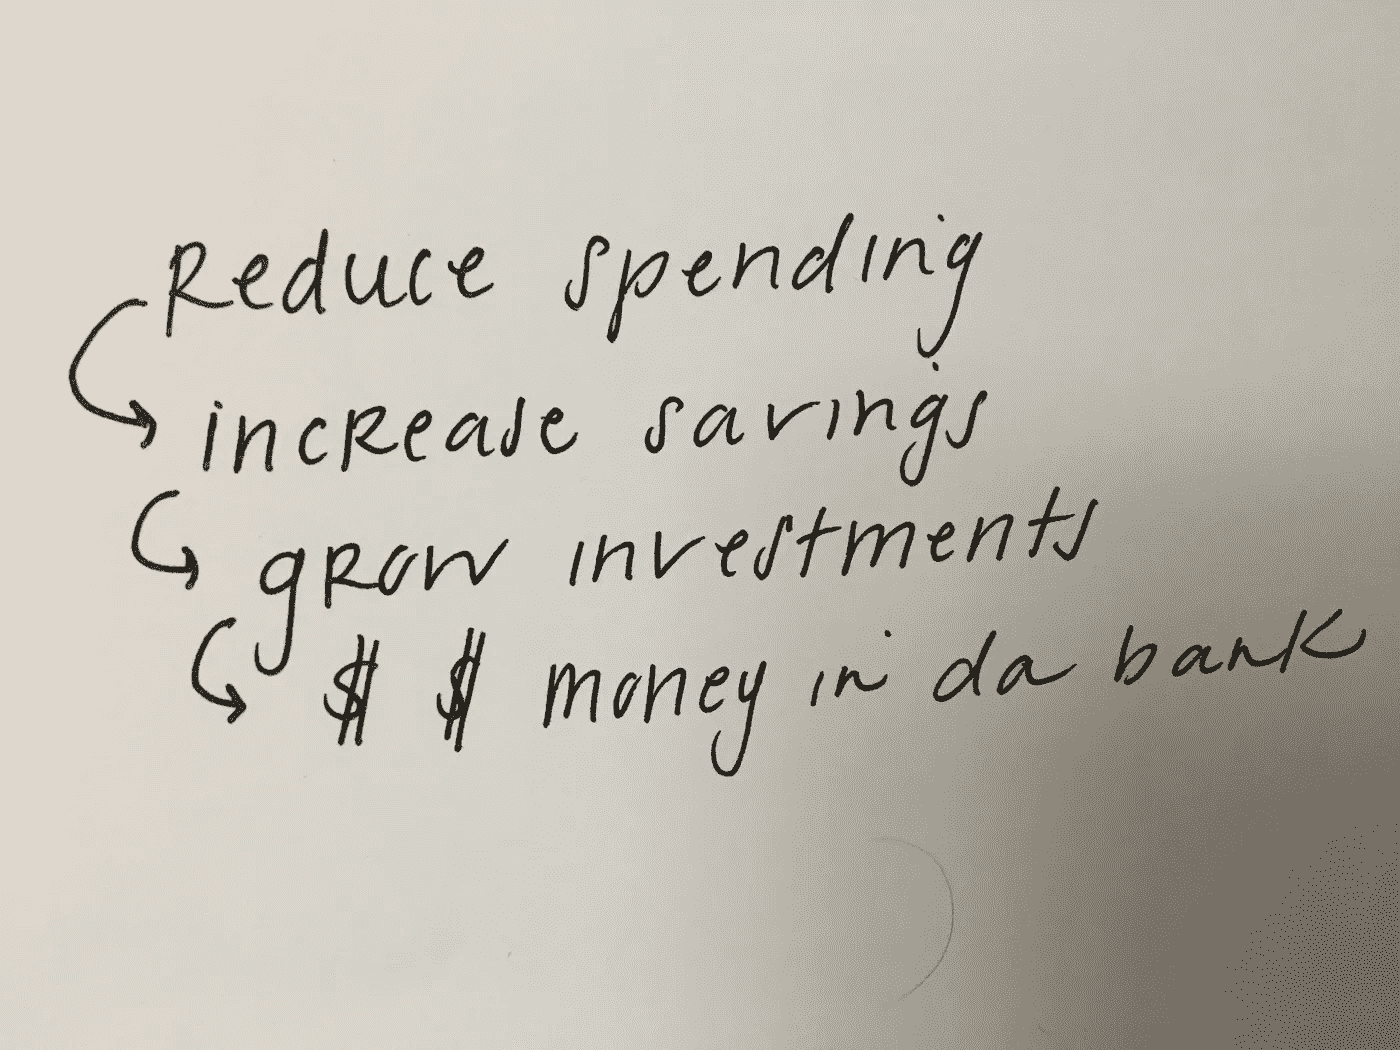 Reduce spending
increase savings
grow investments
$ $ money in da bank